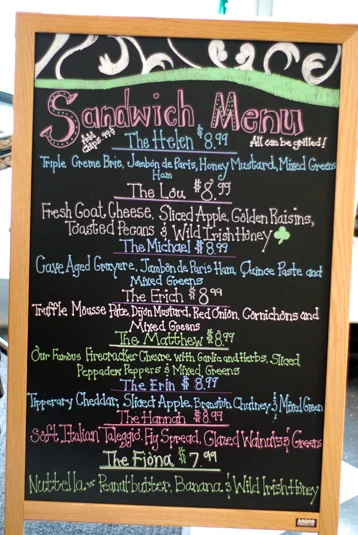 Sandwich Menu
Add
Chips 99¢
All can be grilled!
The Helen $8.99
Triple Creme Brie, Jambon de Paris, Honey Mustard, Mixed Greens
Ham
The Lou $8.99
Fresh Goat Cheese, Sliced Apple, Golden Raisins,
Toasted Pecans & Wild Irish Honey
The Michael $8.99
Cave Aged Gruyere, Jambon de Paris Ham, Quince Paste and
Mixed Greens
The Erich $8.99
Truffle Mousse Pate, Dijon Mustard, Red Onion, Cornichons and
Mixed Greens
The Matthew $8.99
Our Famous Firecracker Chevre with Garlic and Herbs, Sliced
Peppadew Peppers & Mixed Greens
The Erin $8.99
Tipperary Cheddar, Sliced Apple, Braeston Chutney & Mixed Green
The Hannah $8.99
Soft Italian Taleggio, Fig Spread, Glazed Walnuts & Greens
The Fiona $7.99
Nuttella or Peanutbutter, Banana & Wild Irish Honey